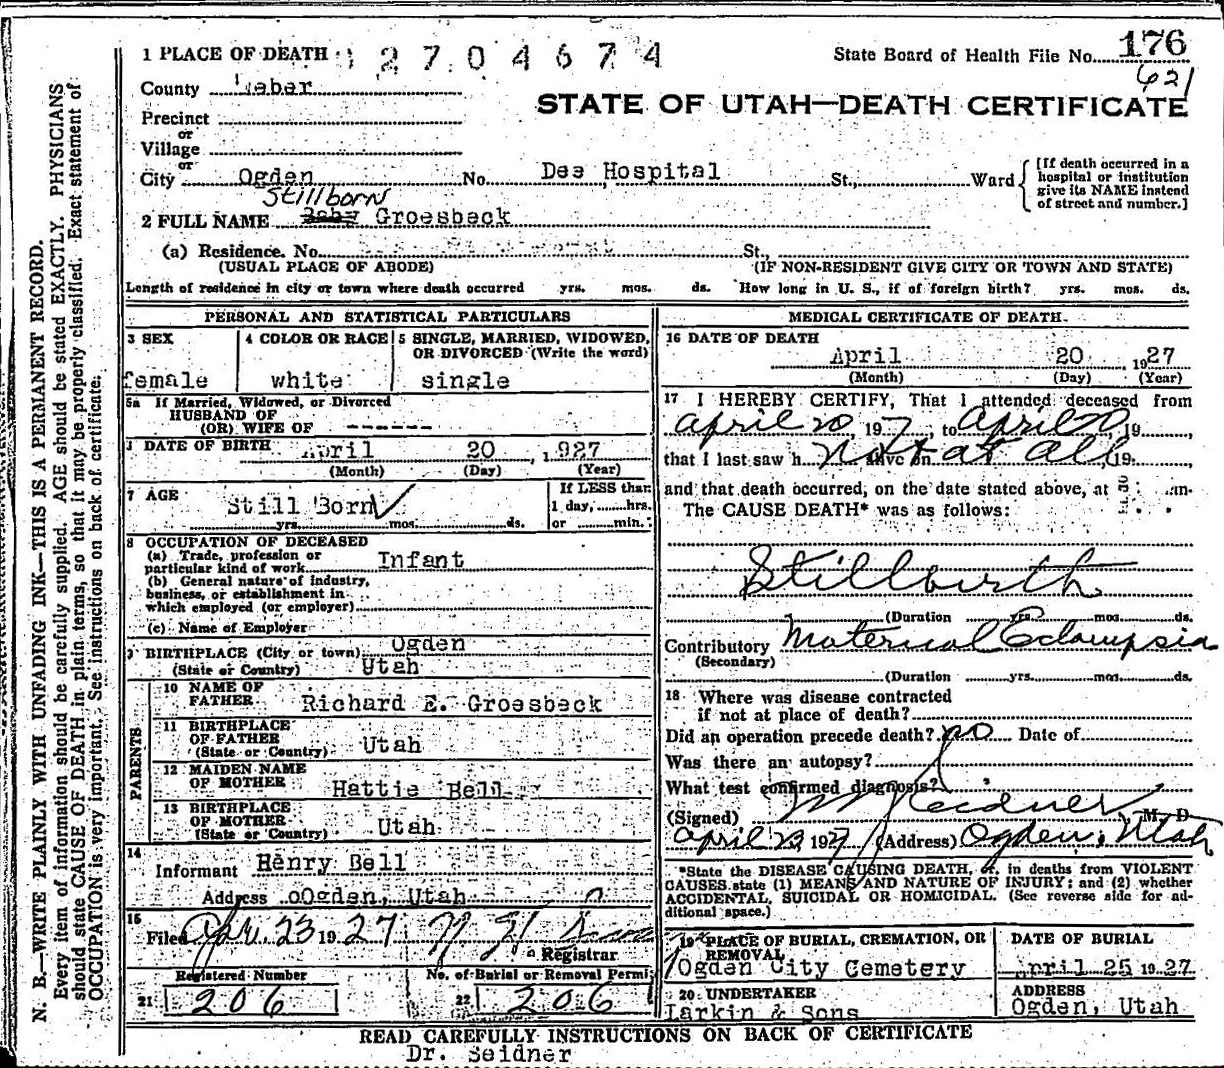 1 PLACE OF DEATH 2704674
State Board of Health File No. 176
621
County Weber
STATE OF UTAH—DEATH CERTIFICATE
Precinct
or
Village
or
City Ogden No. Dee Hospital St., Ward
[If death occurred in a hospital or institution give its NAME instead of street and number.]
Stillborn
2 FULL NAME Baby Groesbeck
(a) Residence. No. St.,
(USUAL PLACE OF ABODE) (IF NON-RESIDENT GIVE CITY OR TOWN AND STATE)
Length of residence in city or town where death occurred yrs. mos. ds. How long in U. S., if of foreign birth? yrs. mos. ds.
PERSONAL AND STATISTICAL PARTICULARS
3 SEX
female
4 COLOR OR RACE
white
5 SINGLE, MARRIED, WIDOWED,
OR DIVORCED (Write the word)
single
5a If Married, Widowed, or Divorced
HUSBAND OF
(OR) WIFE OF ------
DATE OF BIRTH April 20, 1927
(Month) (Day) (Year)
7 AGE Still Born
yrs. mos. ds.
If LESS than
1 day, hrs.
or min.
8 OCCUPATION OF DECEASED
(a) Trade, profession or
particular kind of work Infant
(b) General nature of industry,
business, or establishment in
which employed (or employer)
(c) Name of Employer
9 BIRTHPLACE (City or town) Ogden
(State or Country) Utah
PARENTS
10 NAME OF
FATHER Richard E. Groesbeck
11 BIRTHPLACE
OF FATHER
(State or Country) Utah
12 MAIDEN NAME
OF MOTHER Hattie Bell
13 BIRTHPLACE
OF MOTHER
(State or Country) Utah
14
Informant Henry Bell
Address oOgden, Utah
15
Filed Apr. 23 1927
Registrar
Registered Number
21 206
No. of Burial or Removal Permit
22 206
MEDICAL CERTIFICATE OF DEATH
16 DATE OF DEATH
April 20 1927
(Month) (Day) (Year)
17 I HEREBY CERTIFY, That I attended deceased from
April 20, 197, to April 20, 19
that I last saw h Not at all alive on , 19
and that death occurred, on the date stated above, at m.
The CAUSE DEATH* was as follows:
Stillbirth
(Duration yrs. mos. ds.
Contributory Maternal Eclampsia
(Secondary)
(Duration yrs. mos. ds.
18 Where was disease contracted
if not at place of death?
Did an operation precede death? no Date of
Was there an autopsy?
What test confirmed diagnosis?
(Signed) Seidner M. D.
April 23, 1927 (Address) Ogden, Utah
*State the DISEASE CAUSING DEATH, or, in deaths from VIOLENT
CAUSES state (1) MEANS AND NATURE OF INJURY; and (2) whether
ACCIDENTAL, SUICIDAL OR HOMICIDAL. (See reverse side for ad-
ditional space.)
19 PLACE OF BURIAL, CREMATION, OR
REMOVAL
Ogden City Cemetery
DATE OF BURIAL
April 25 1927
20 UNDERTAKER
Larkin & Sons
ADDRESS
Ogden, Utah
READ CAREFULLY INSTRUCTIONS ON BACK OF CERTIFICATE
Dr. Seidner
N. B.—WRITE PLAINLY WITH UNFADING INK—THIS IS A PERMANENT RECORD.
Every item of information should be carefully supplied. AGE should be stated EXACTLY. PHYSICIANS
should state CAUSE OF DEATH in plain terms, so that it may be properly classified. Exact statement of
OCCUPATION is very important. See instructions on back of certificate.